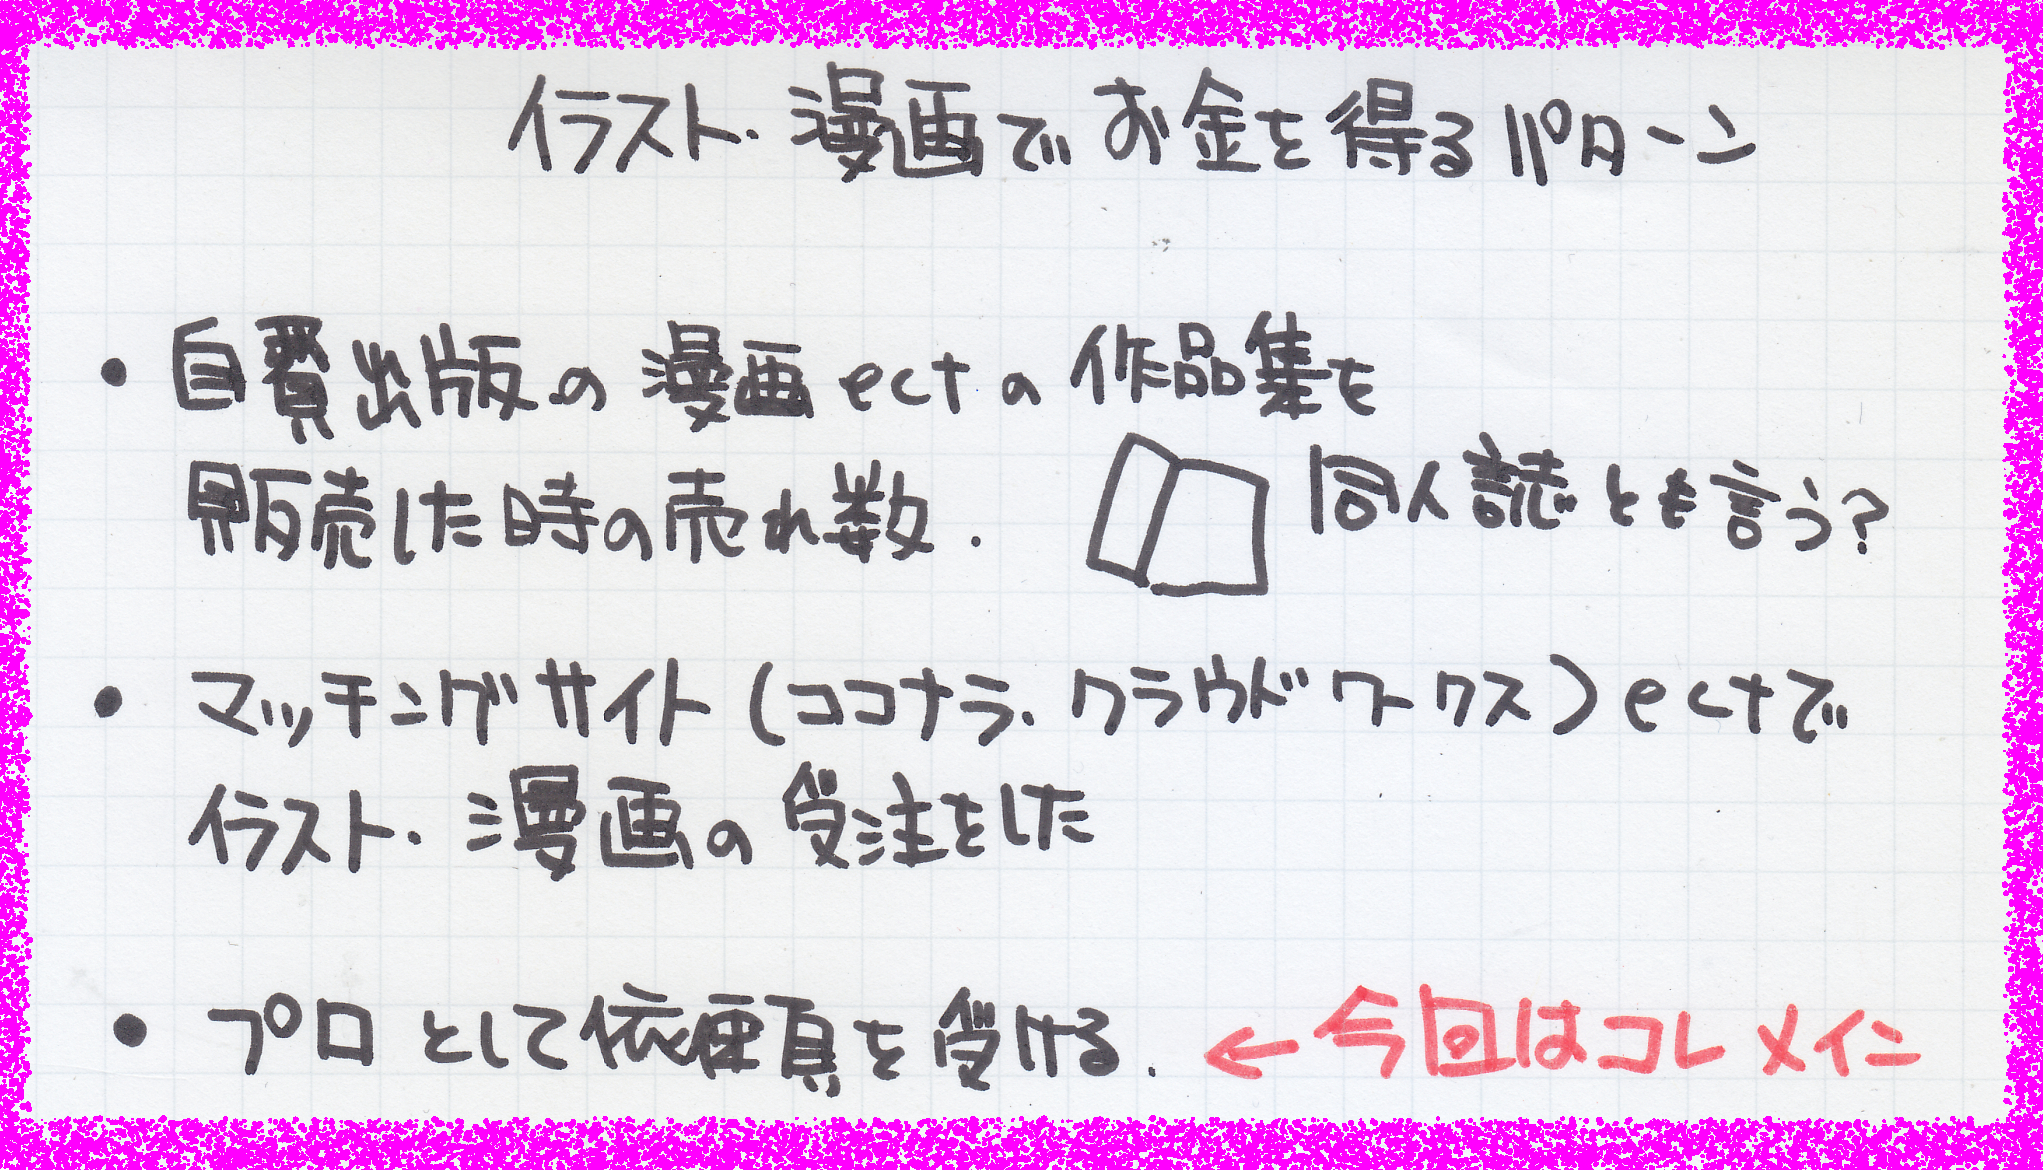 イラスト・漫画でお金を得るパターン
・自費出版の漫画ectの作品集を
販売した時の売れ数.
同人誌とも言う?
・マッチングサイト(ココナラ.クラウドワークス)ectで
イラスト・漫画の受注をした
・プロとして依頼を受ける.
←今回はコレメイン